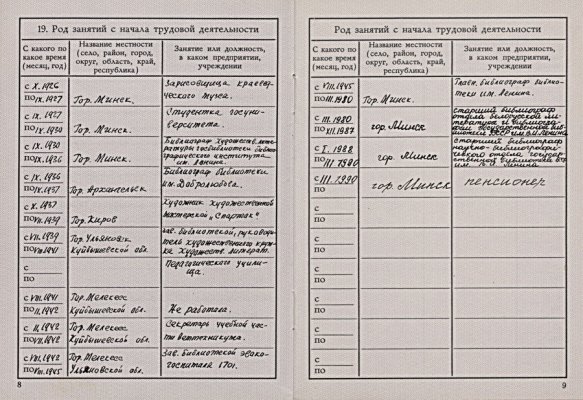 19. Род занятий с начала трудовой деятельности
С какого по какое время (месяц, год)
Название местности (село, район, город, округ, область, край, республика)
Занятие или должность, в каком предприятии, учреждении
с X.1926
по IX.1927
Гор. Минск.
Зарисовщица краеведческого музея.
с IX.1927
по IX.1930
Гор. Минск.
Студентка госуниверситета.
с IX.1930
по IX.1936
Гор. Минск.
Библиограф художественной литературы госбиблиотеки
института им. Ленина.
с IX.1936
по IX.1937
Гор. Архангельск
Библиограф библиотеки
им. Добролюбова.
с IX.1937
по VII.1939
Гор. Киров
Художник художественной
мастерской „Спартак“
с VII.1939
по VIII.1941
Гор. Ульяновск
Куйбышевской обл.
Зав. библиотекой, руководитель художественного кружка
с
по
Педагогического училища.
с VIII.1941
по II.1942
Гор. Мелекесс
Куйбышевской обл.
Не работала.
с II.1942
по VII.1942
Гор. Мелекесс
Куйбышевской обл.
Секретарь учебной части ветеехникума.
с VII.1942
по VIII.1945
Гор. Мелекесс
Ульяновской обл.
Зав. библиотекой эвакогоспиталя 1701.
8
Род занятий с начала трудовой деятельности
С какого по какое время (месяц, год)
Название местности (село, район, город, округ, область, край, республика)
Занятие или должность, в каком предприятии, учреждении
с VIII.1945
по III.1980
Гор. Минск.
Главн. библиограф библиотеки им. Ленина.
с III.1980
по XII.1987
гор. Минск
старший библиограф
отдела белорусской литературы и библиографии Государственной библиотеки БССР им. В.И. Ленина
с I.1988
по III.1990
гор. Минск
старший библиограф
научно-библиографического отдела Государственной библиотеки БССР
им. В.И. Ленина
с III.1990
по
гор. Минск
пенсионер
с
по
с
по
с
по
с
по
с
по
9